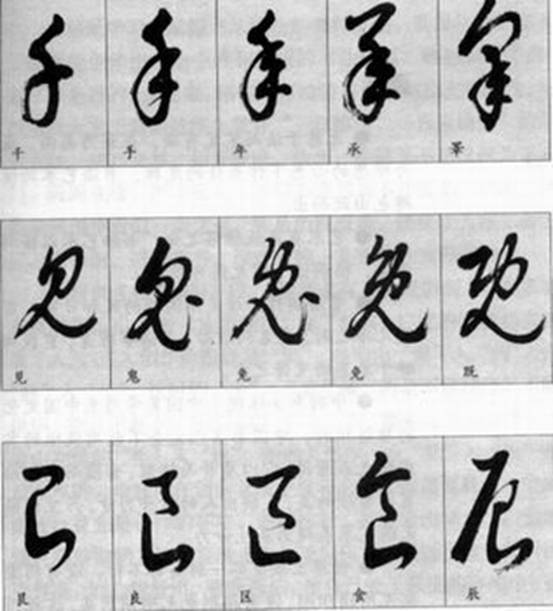 千 手 年 承 举
见 鬼 兔 免 既
艮 良 区 食 辰